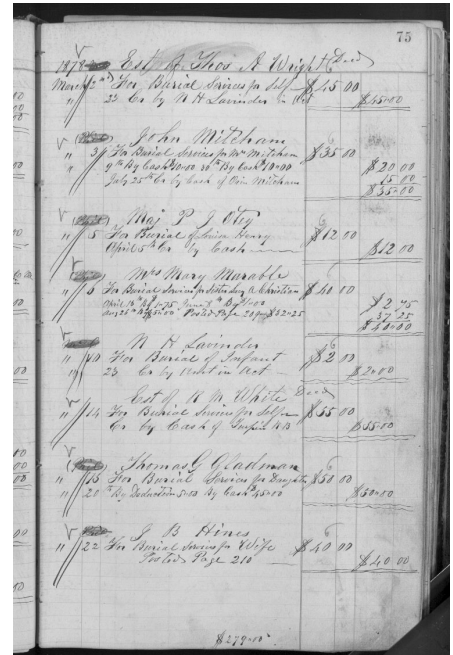 75
1878 Est of Thos A Wright Decd
March 2nd For Burial Services for Self $45 00
" 23 Cr by N H Lavinder in Act $45.00
John Mitcham
" 3 For Burial Services for Mitcham $35 00
9th By Cash 10.00 By Cash 10.00 $20 00
July 25th Cr by Cash of Mitcham 15 00
$35.00
Maj P J Otey
" 5 For Burial of Henry $12 00
April 5th Cr by Cash $12 00
Mrs Mary Marable
" 6 For Burial Services for Christian $40 00
April 16th By 1.75 June 8th By $1.00 $2.75
Aug 25th Posted Page 37 25
$40.00
N H Lavinder
" 10 For Burial of Infant $2 00
" 23 Cr by Amt in Act $2.00
Est of White Decd
" 14 For Burial Services for Self $55 00
Cr by Cash of $55.00
Thomas G Gladman
" 15 For Burial Services for Daughter $50 00
" 20th By Deduction 5.00 By Cash 45.00 $50.00
J B Hines
" 22 For Burial Services for Wife $40 00
Posted Page 210 $40 00
$279.00